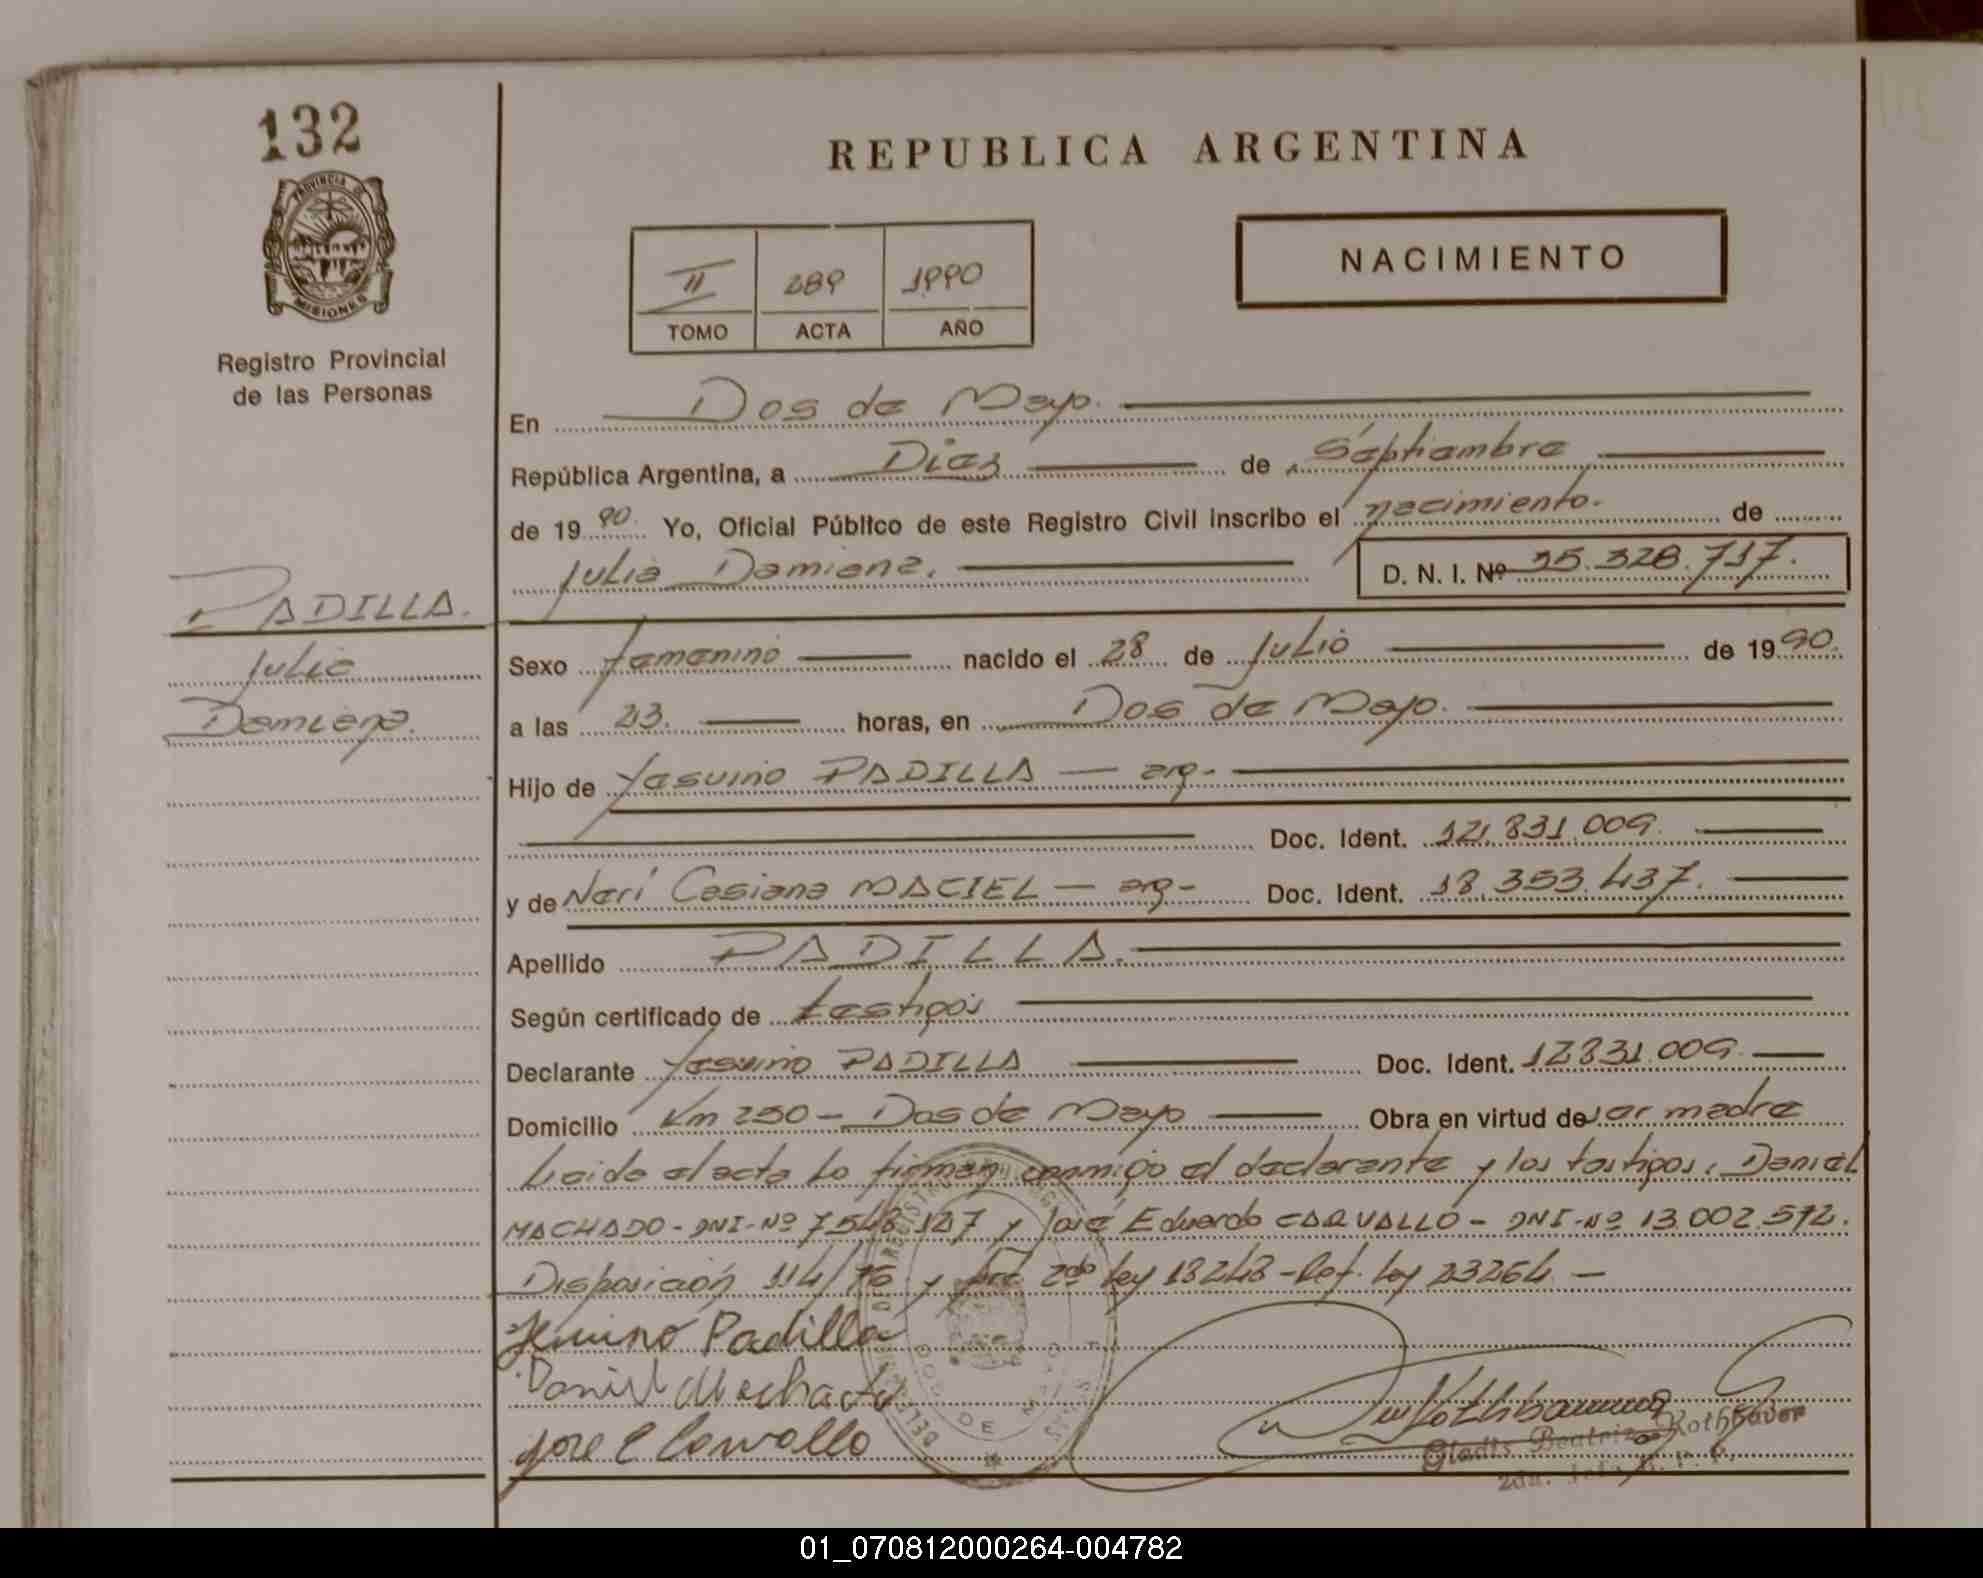 132
PROVINCIA DE
MISIONES
Registro Provincial
de las Personas
PADILLA.
Julia
Damiana.
REPUBLICA ARGENTINA
NACIMIENTO
II 289 1990
TOMO ACTA AÑO
En Dos de Mayo.
República Argentina, a Diez de Septiembre
de 1990. Yo, Oficial Público de este Registro Civil inscribo el nacimiento. de
Julia Damiana. D. N. I. Nº 35.328.717.
Sexo femenino nacido el 28 de Julio de 1990.
a las 23. horas, en Dos de Mayo.
Hijo de Jesuino PADILLA — arg-
Doc. Ident. 12.831.009.
y de Neri Casiana MACIEL — arg- Doc. Ident. 18.353.437.
Apellido PADILLA.
Según certificado de testigos
Declarante Jesuino PADILLA Doc. Ident. 12831.009.
Domicilio Km 250 - Dos de Mayo Obra en virtud de ser madre
Leida el acta la firman conmigo el declarante y los testigos, Daniel
MACHADO - DNI-Nº 7.548.127 y José Eduardo CARVALLO - DNI-Nº 13.002.572.
Disposición 114/76 y Art 2do Ley 18248-Ref. Ley 23264. —
Jesuino Padilla
Daniel Machado
Jose E Carvallo
DOS DE MAYO
Gladis Beatriz Rothbauer
2da. Jefe R. P. P.
01_070812000264-004782